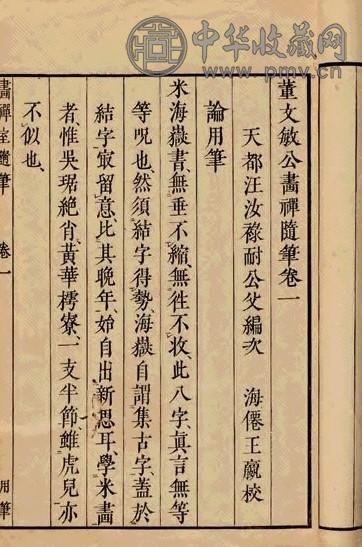 中华收藏网
www.pmv.cn
董文敏公畵禪隨筆卷一
天都汪汝祿耐公父編次 海僊王𤩽校
論用筆
米海嶽書、無垂不縮無徃不收、此八字、眞言無等
等呪也、然須結字得勢、海嶽自謂集古字、葢於
結字㝡留意、比其晚年、始自出新思耳、學米畵
者、惟吳琚絶肖、黃華樗寮、一支半節、雖虎兒亦
不似也、
畵禪室隨筆 卷一 用筆